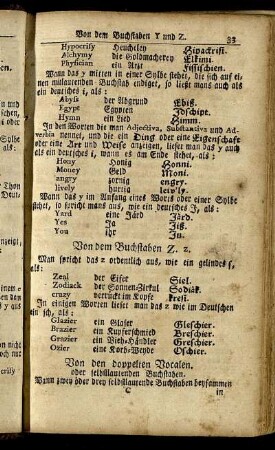 Von dem Buchstaben Y und Z. 33
Hypocrisy Heucheley Hipackrisi.
Alchymy die Goldmacherey Elkimi.
Physician ein Arzt Fisischien.
Wann das y mitten in einer Sylbe stehet, die sich auf ei-
nen mitlautenden Buchstab endiget, so lieset mans auch als
ein deutsches i, als:
Abyss der Abgrund Ebiß.
Egypt Egypten Idschipt.
Hymn ein Lied Himm.
In den Worten die man Adjectiva, Substantiva und Ad-
verbia nennet, und die ein Ding oder eine Eigenschaft
oder eine Art und Weise anzeigen, lieset man das y auch
als ein deutsches i, wann es am Ende stehet, als:
Hony Honig Honni.
Money Geld Moni.
angry zornig engry.
lively hurtig leiv'ly.
Wann das y im Anfang eines Worts oder einer Sylbe
stehet, so spricht mans aus, wie ein deutsches J, als:
Yard eine Yard Järd.
Yes Ja Jiß.
You ihr Ju.
Von dem Buchstaben Z. z.
Man spricht das z ordentlich aus, wie ein gelindes s,
als:
Zeal der Eifer Siel.
Zodiack der Sonnen-Zirkul Sodiäk.
crazy verruckt im Kopfe kresi.
In einigen Worten lieset man das z wie im Deutschen
ein sch, als:
Glazier ein Glaser Gleschier.
Brazier ein Kupferschmied Breschier.
Grazier ein Vieh-Händler Greschier.
Ozier eine Korb-Weyde Oschier.
Von den doppelten Vocalen,
oder selbstlautende Buchstaben.
Wann zwey oder drey selbstlautende Buchstaben beysammen
C in